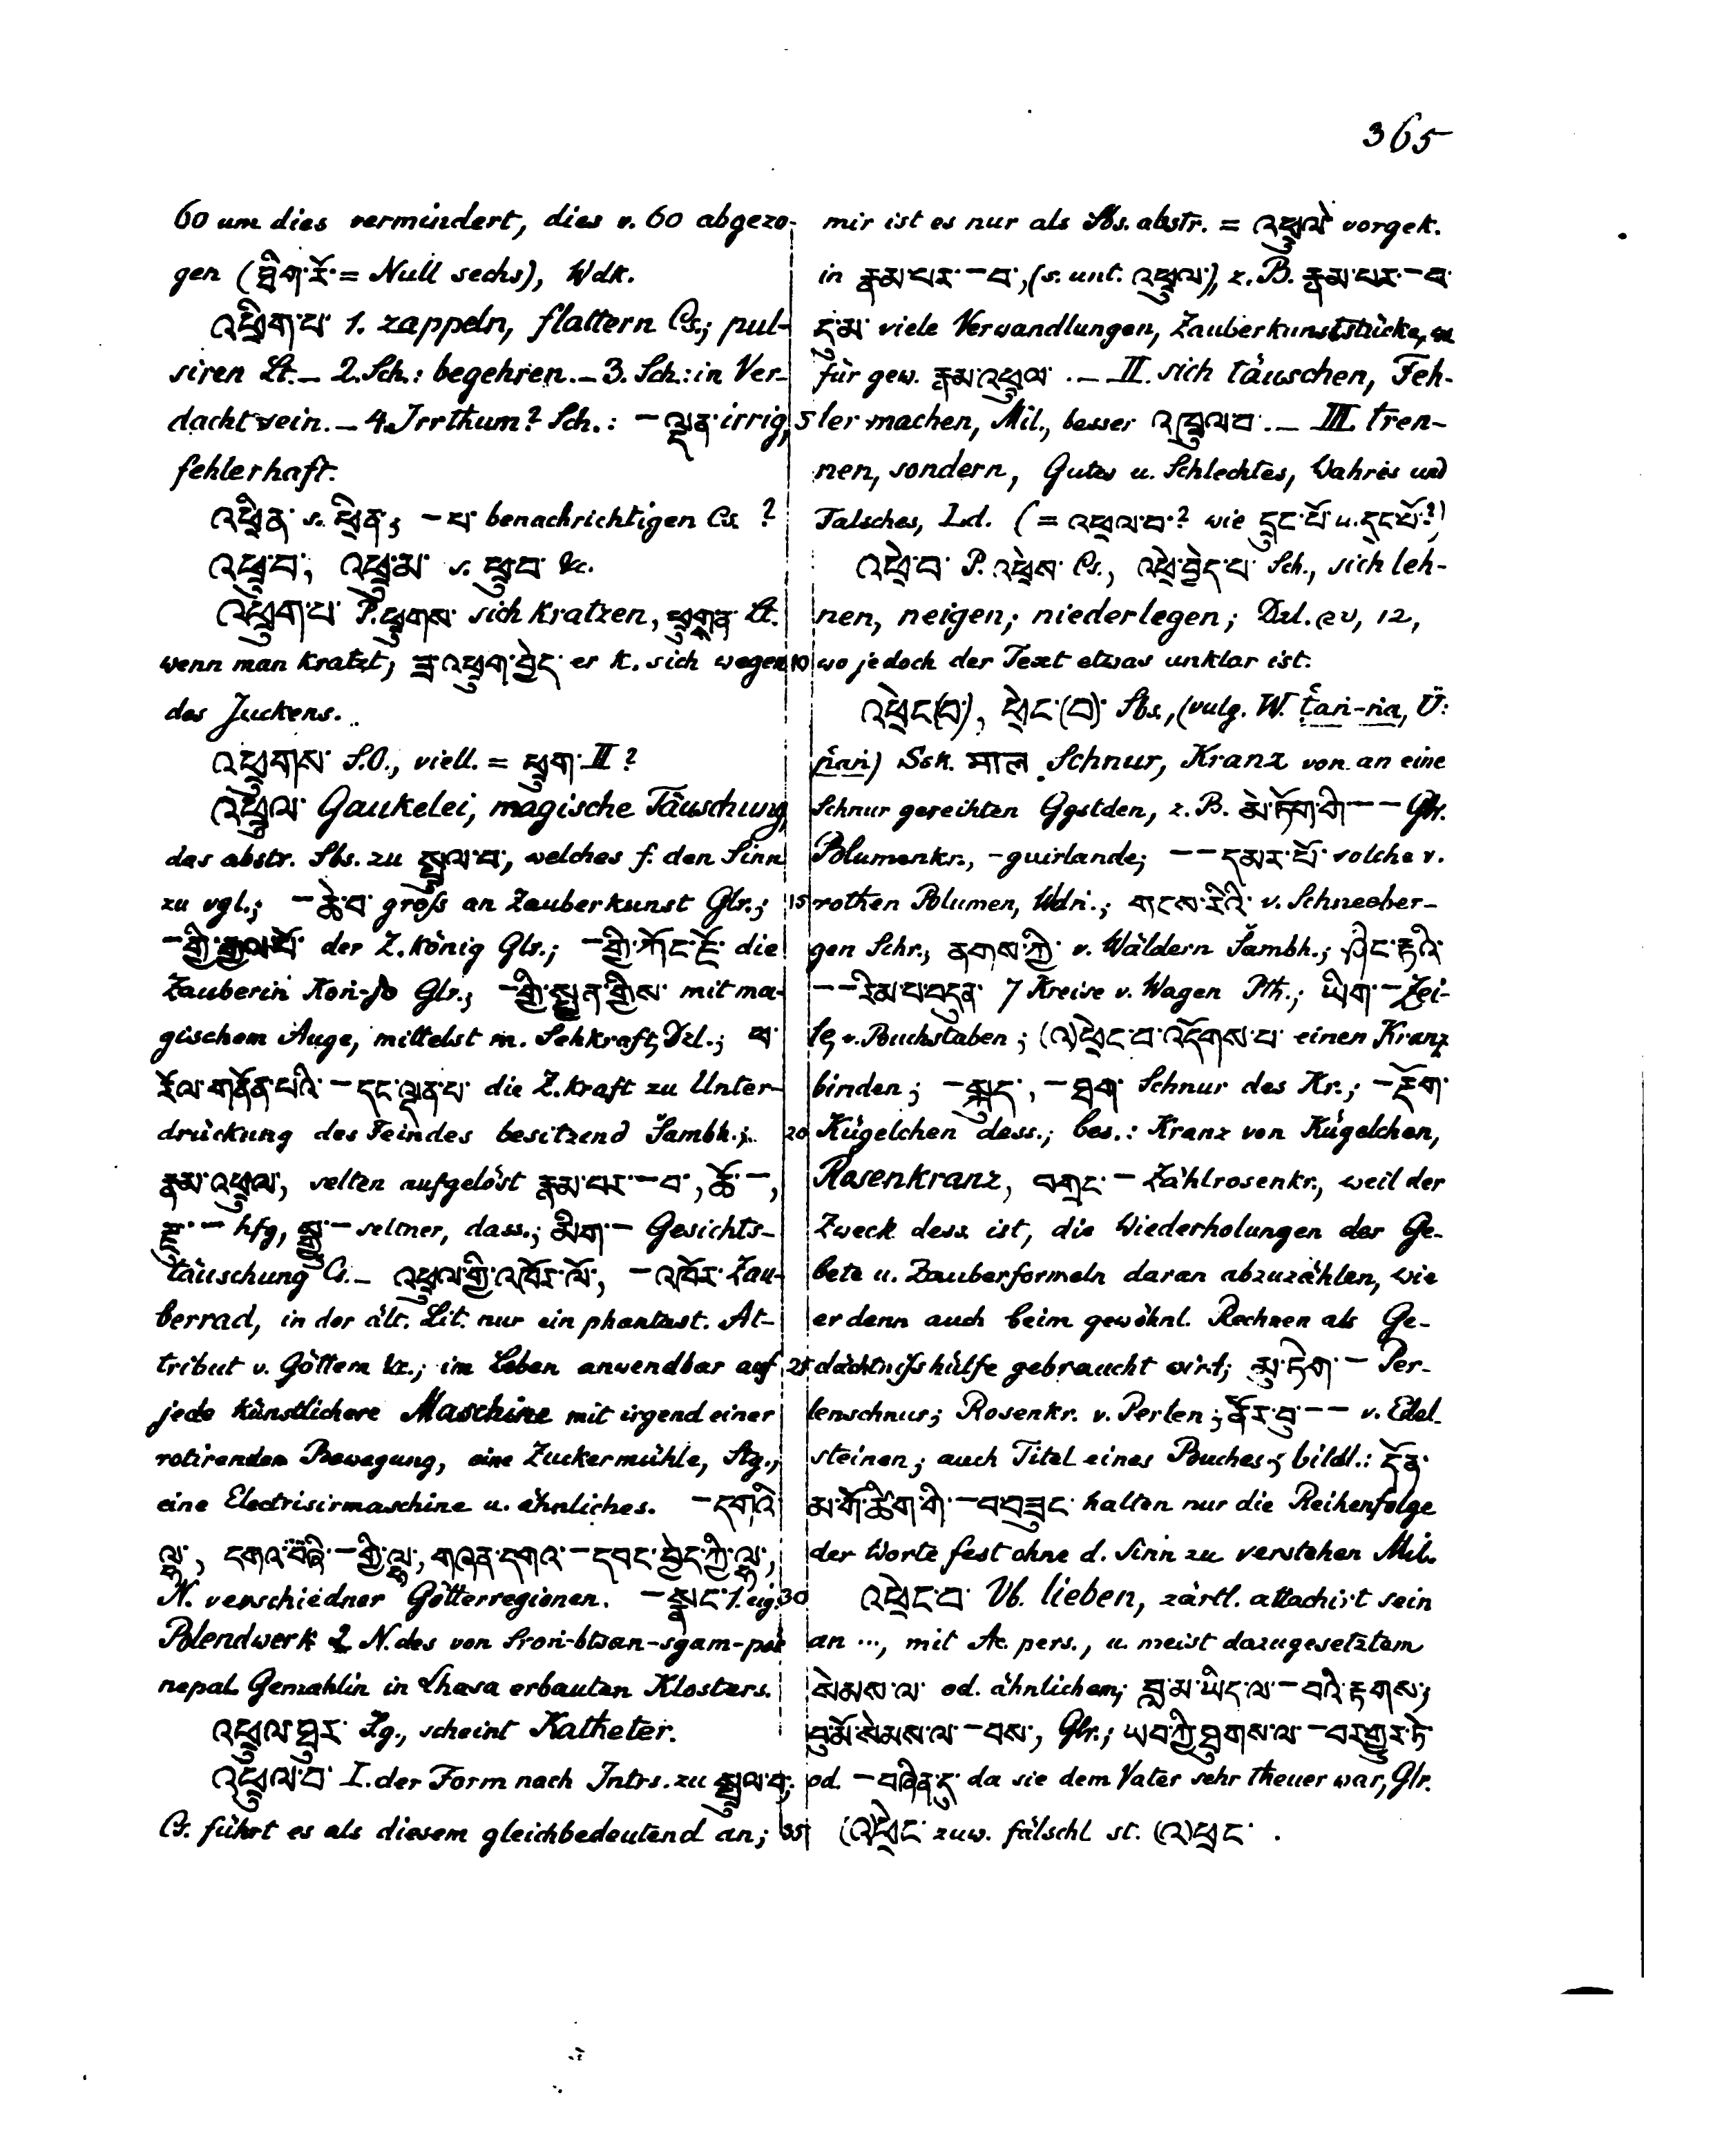 365
60 um dies vermindert, dies v. 60 abgezo-
gen (ཐིག་རོ་ = Null sechs), Wdk.
འཕྲིག་པ་ 1. zappeln, flattern Cs.; pul-
siren Lt. — 2. Sch.: begehren. — 3. Sch.: in Ver-
dacht sein. — 4. Irrthum? Sch.: — ལྡན་ irrig,
fehlerhaft.
འཕྲིན་ s. ཕྲིན་; — པ་ benachrichtigen Cs. ?
འཕྲུ་བ་, འཕྲུ་མ་ s. ཕྲུ་བ་ &c.
འཕྲུག་པ་ P. ཕྲུགས་ sich kratzen, Lt.
wenn man kratzt; ཟ་འཕྲུག་བྱེད་ er k. sich wegen
des Juckens.
འཕྲུགས་ S.O., viell. = ཕྲུག་ II ?
འཕྲུལ་ Gaukelei, magische Täuschung,
das abstr. Sbs. zu སྤྲུལ་བ་, welches f. den Sinn
zu vgl.; — ཆེ་བ་ groß an Zauberkunst Glr.;
— གྱི་རྒྱལ་པོ་ der Z.könig Glr.; — གྱི་ཀོང་ཇོ་ die
Zauberin Koṅ-jo Glr.; — གྱི་སྤྱན་གྱིས་ mit ma-
gischem Auge, mittelst m. Sehkraft, Dzl.; ཕ་
རོལ་གནོན་པའི་ — དང་ལྡན་པ་ die Z.kraft zu Unter-
drückung des Feindes besitzend Šambh.;
རྣམ་འཕྲུལ་, selten aufgelöst རྣམ་པར་ — བ་, ཆོ་ —,
རྫུ་ — hfg, སྒྱུ་ — seltner, dass.; མིག་ — Gesichts-
täuschung Cs. — འཕྲུལ་གྱི་འཁོར་ལོ་, — འཁོར་ Zau-
berrad, in der ält. Lit. nur ein phantast. At-
tribut v. Göttern &c.; im Leben anwendbar auf
jede künstlichere Maschine mit irgend einer
rotirenden Bewegung, eine Zuckermühle, Stg.,
eine Electrisirmaschine u. ähnliches. — དགའི་
ལྷ་, — གྱི་ལྷ་, གཞན་ — དབང་བྱེད་ཀྱི་ལྷ་,
N. verschiedner Götterregionen. — སྣང་ 1. eig.
Blendwerk 2. N. des von Sroṅ-btsan-sgam-po's
nepal. Gemahlin in Lhasa erbauten Klosters.
འཕྲུལ་ཐུར་ Zg., scheint Katheter.
འཕྲུལ་བ་ I. der Form nach Intrs. zu སྤྲུལ་བ་;
Cs. führt es als diesem gleichbedeutend an;
mir ist es nur als Sbs. abstr. = འཕྲུལ་ vorgek.
in རྣམ་པར་ — བ་, (s. unt. འཕྲུལ་), z. B. རྣམ་པར་ — བ་
དུ་མ་ viele Verwandlungen, Zauberkunststücke,
für gew. རྣམ་འཕྲུལ་. — II. sich täuschen, Feh-
5 ler machen, Mil., besser འཁྲུལ་བ་. — III. tren-
nen, sondern, Gutes u. Schlechtes, Wahres und
Falsches, Ld. (= འཕྲལ་བ་? wie དྲུང་པོ་ u. དྲང་པོ་?)
འཕྲེ་བ་ P. འཕྲེས་ Cs., འཕྲེ་བྱེད་པ་ Sch., sich leh-
nen, neigen; niederlegen; Dzl. ༢༠, 12,
10 wo jedoch der Text etwas unklar ist.
འཕྲེང་(བ་), ཕྲེང་(བ)་ Sbs., (vulg. W. Ü:
Ssk. माल Schnur, Kranz von an eine
Schnur gereihten Ggstden, z. B. མེ་ཏོག་གི་ — — Glr.
Blumenkr., -guirlande; — — དམར་པོ་ solche v.
15 rothen Blumen, Wdn.; གངས་རིའི་ v. Schneeber-
gen Schr., ནགས་ཀྱི་ v. Wäldern Šambh.; ཤིང་རྟའི་
— — རིམ་པ་བདུན་ 7 Kreise v. Wagen Pth.; ཡིག་ — Zei-
le, v. Buchstaben; (འ)ཕྲེང་བ་འདོགས་པ་ einen Kranz
binden; — སྐུད་, — ཐག་ Schnur des Kr.; — རྡོག་
20 Kügelchen dess.; bes.: Kranz von Kügelchen,
Rosenkranz, བགྲང་ — Zählrosenkr., weil der
Zweck dess. ist, die Wiederholungen der Ge-
bete u. Zauberformeln daran abzuzählen, wie
er denn auch beim gewöhnl. Rechnen als Ge-
25 dächtnißhülfe gebraucht wird; མུ་ཏིག་ — Per-
lenschnur; Rosenkr. v. Perlen; ནོར་བུ་ — — v. Edel-
steinen; auch Titel eines Buches; bildl.: དོན་
མ་གོ་ཚིག་གི་ — བ་བཟུང་ halten nur die Reihenfolge
der Worte fest ohne d. Sinn zu verstehen Mil.
30 འཕྲེང་བ་ Vb. lieben, zärtl. attachirt sein
an ..., mit Ac. pers., u. meist dazugesetztem
སེམས་ལ་ od. ähnlichem; བླ་མ་ཡིད་ལ་ — བའི་རྟགས་;
བུ་མོ་སེམས་ལ་ — བས་, Glr.; ཡབ་ཀྱི་ཐུགས་ལ་ — བར་གྱུར་ཏེ་
od. — བཞིན་དུ་ da sie dem Vater sehr theuer war, Glr.
35 (འ)ཕྲེང་ zuw. fälschl st. (འ)ཕྲང་ .